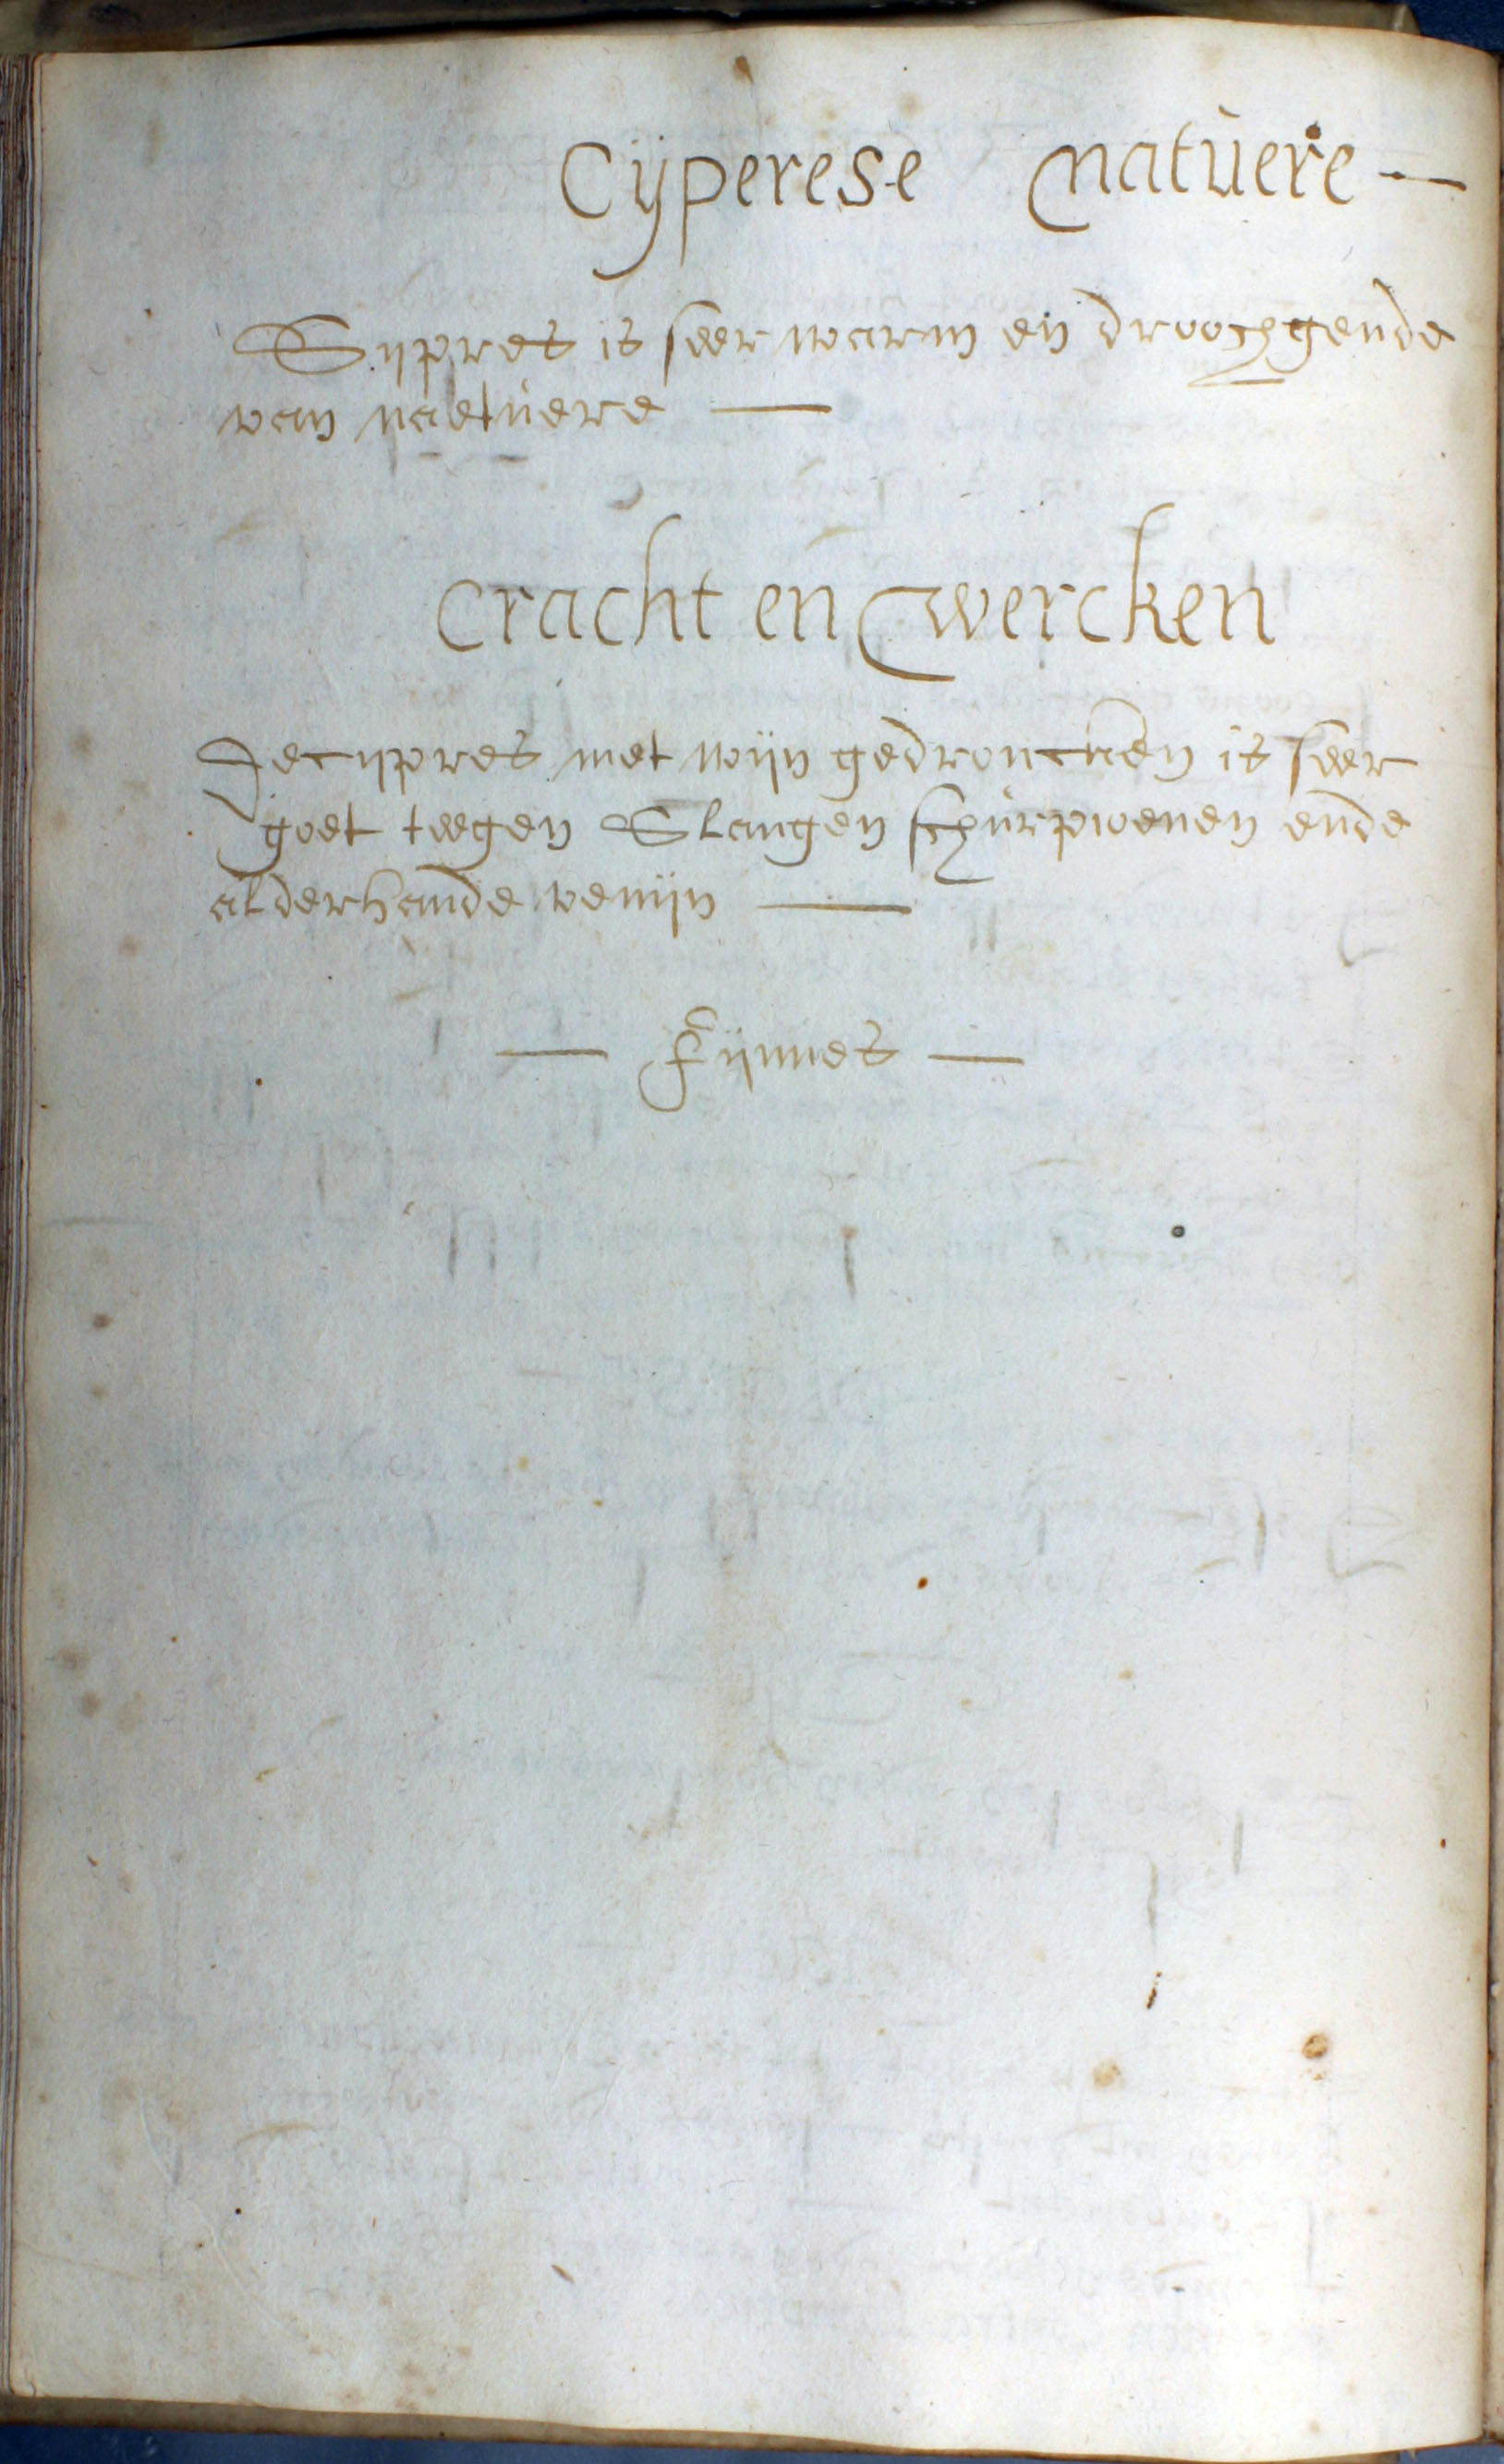 Cÿperese natuere —
Sypres is seer warm en droochgende
van naetuere —
Cracht en wercken
Decypres met wijn gedroncken is seer
goet teegen Slangen schurpioenen ende
alderhande venijn —
— Fÿnnes —